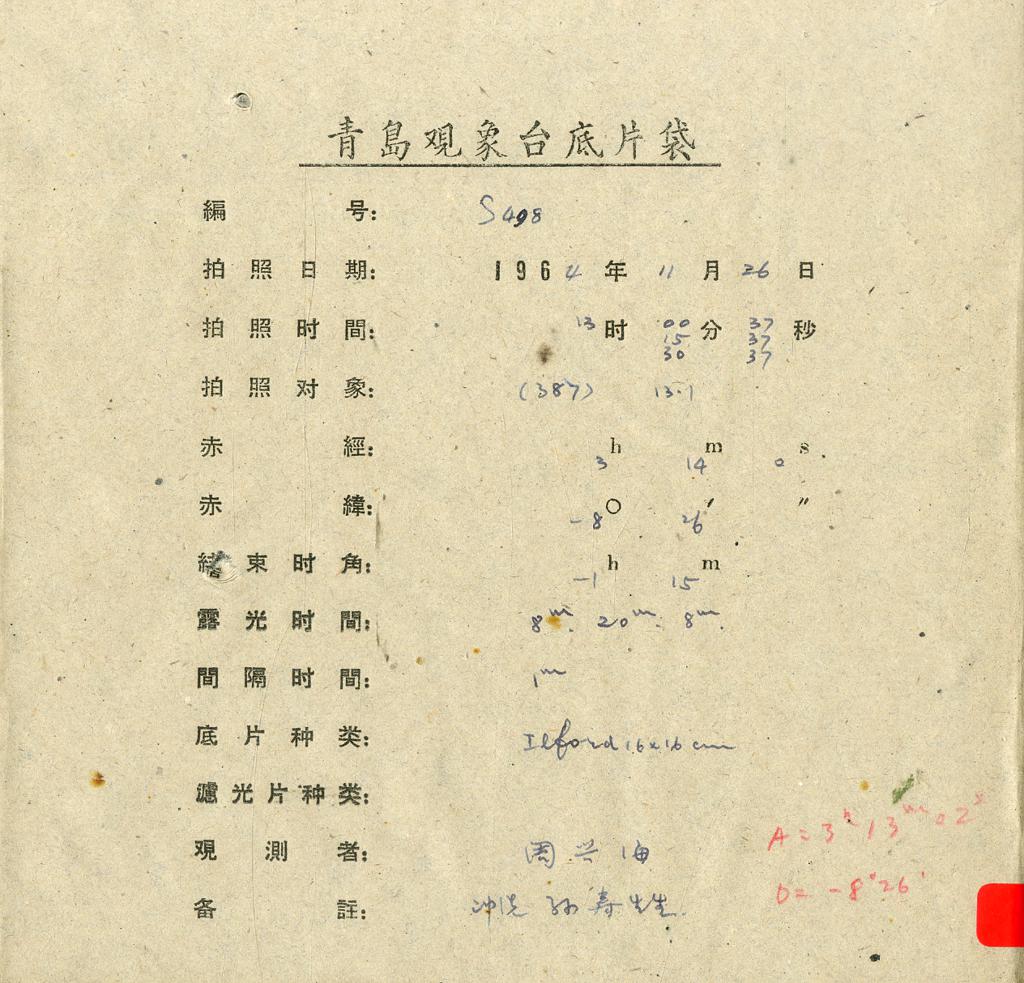 青島观象台底片袋
編号: S498
拍照日期: 1964年11月26日
拍照时間: 13时00分37秒
15 37
30 37
拍照对象: (387) 13.1
赤經: 3h 14m 0s.
赤緯: -8° 26′ ″
結束时角: -1h 15m
露光时間: 8m. 20m. 8m.
間隔时間: 1m
底片种类: Ilford 16x16cm
濾光片种类:
观測者: 周兴海
备註: 冲洗 孙寿先生.
A=3h13m02s
D=-8°26′